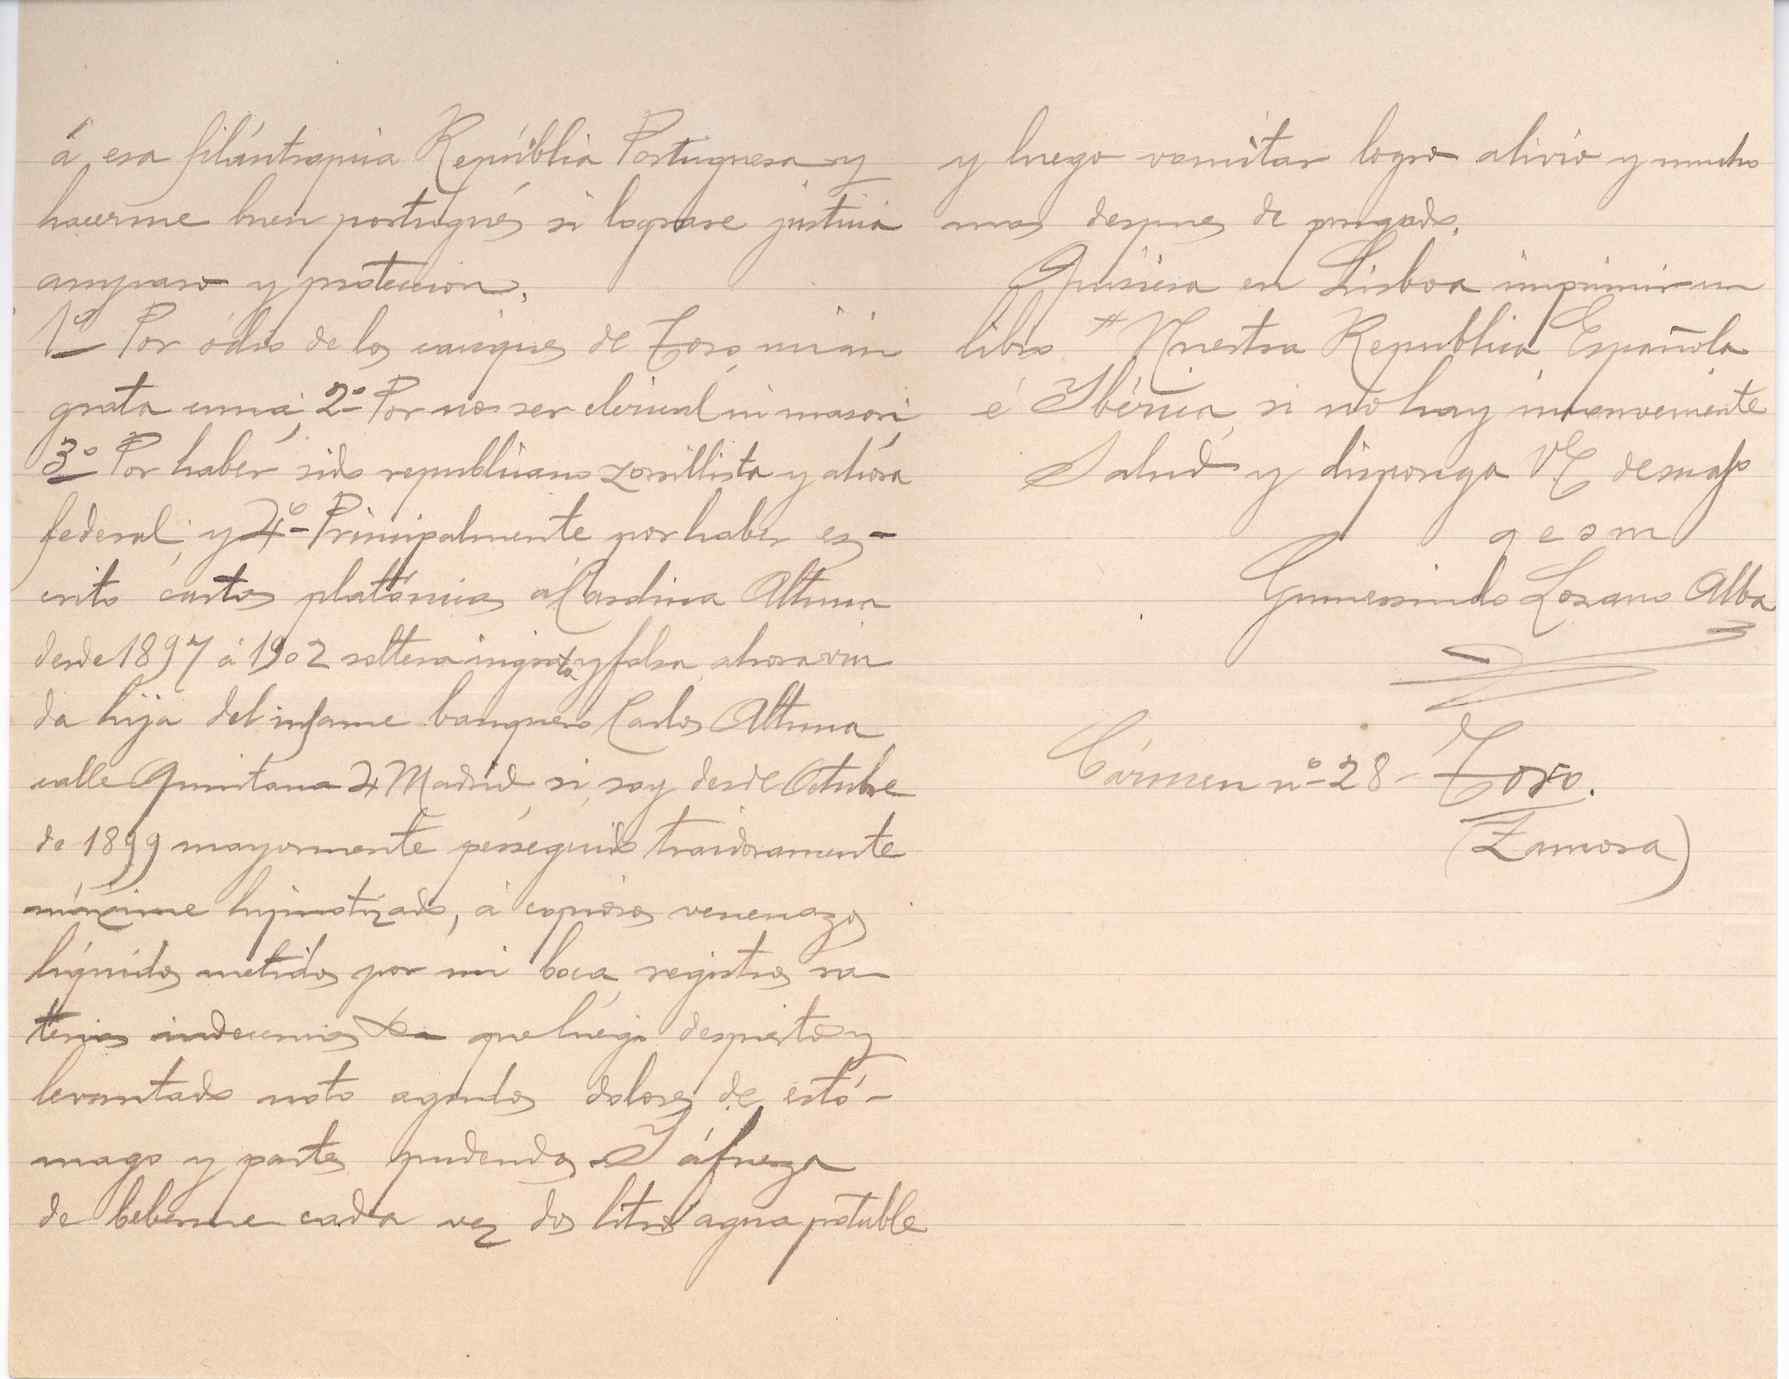 á esa filántrapica República Portuguesa y
hacerme buen portugués si lograse justicia
amparo y proteccion.
1º Por ódio de los caciques de Toro, mi in
grata cuna; 2º Por no ser clerical ni mason;
3º Por habér sido republicano zorrillista y ahóra
federal; y 4º Principalmente por haber es-
crito cartas platónicas á Cardina Altuna
desde 1897 á 1902 soltera ingrata y falsa, ahora viu
da hija del infame banquero Carlos Altuna
calle Quintana 4 Madrid si, soy desde Octubre
de 1899 mayormente perseguido traidoramente
máxime hipnotizado, á copiosos venenazos
líquidos metidos por mi boca, registros ra
terias indecencias que luego despierto y
levantado noto agudos dolores de estó-
mago y partes pudendas. Y á fuerza
de beberme cada vez dos litros agua potable
y luego vomitar logro alivio y mucho
mas despues de purgado.
Quisiera en Lisboa imprimir un
libro "Nuestra Republica Española
é Ibérica, si no hay inconveniente
Salud y disponga VE de su af.º
q e s m
Gumersindo Lozano Alba
Cármen nº 28 - Toro.
(Zamora)